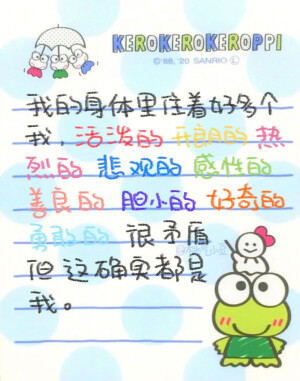 KEROKEROKEROPPI
© '88, '20 SANRIO Ⓛ
我的身体里住着好多个
我，活泼的 开朗的 热
烈的 悲观的 感性的
善良的 胆小的 好奇的
勇敢的 很矛盾
但这确实都是
我。